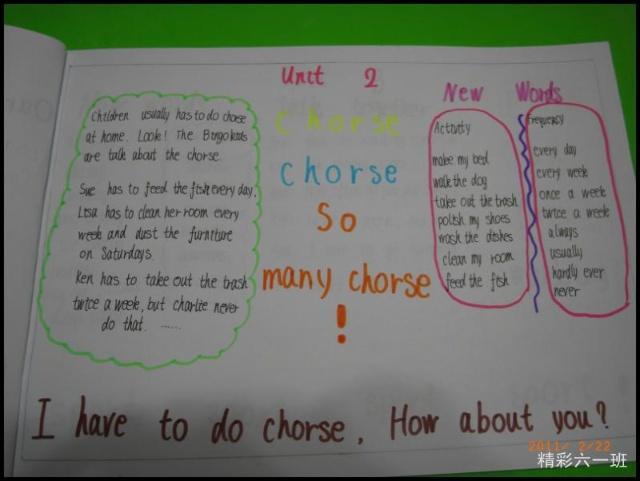 Unit 2
chorse
chorse
So
many chorse
!
Children usually has to do chorse
at home. Look! The Burgokids
are talk about the chorse.
Sue has to feed the fish every day.
Lisa has to clean her room every
week and dust the furniture
on Saturdays.
Ken has to take out the trash
twice a week, but charlie never
do that. ......
New Words
Activity
make my bed
walk the dog
take out the trash
polish my shoes
wash the dishes
clean my room
feed the fish
Frequency
every day
every week
once a week
twice a week
always
usually
hardly ever
never
I have to do chorse. How about you?
2011/ 2/22
精彩六一班